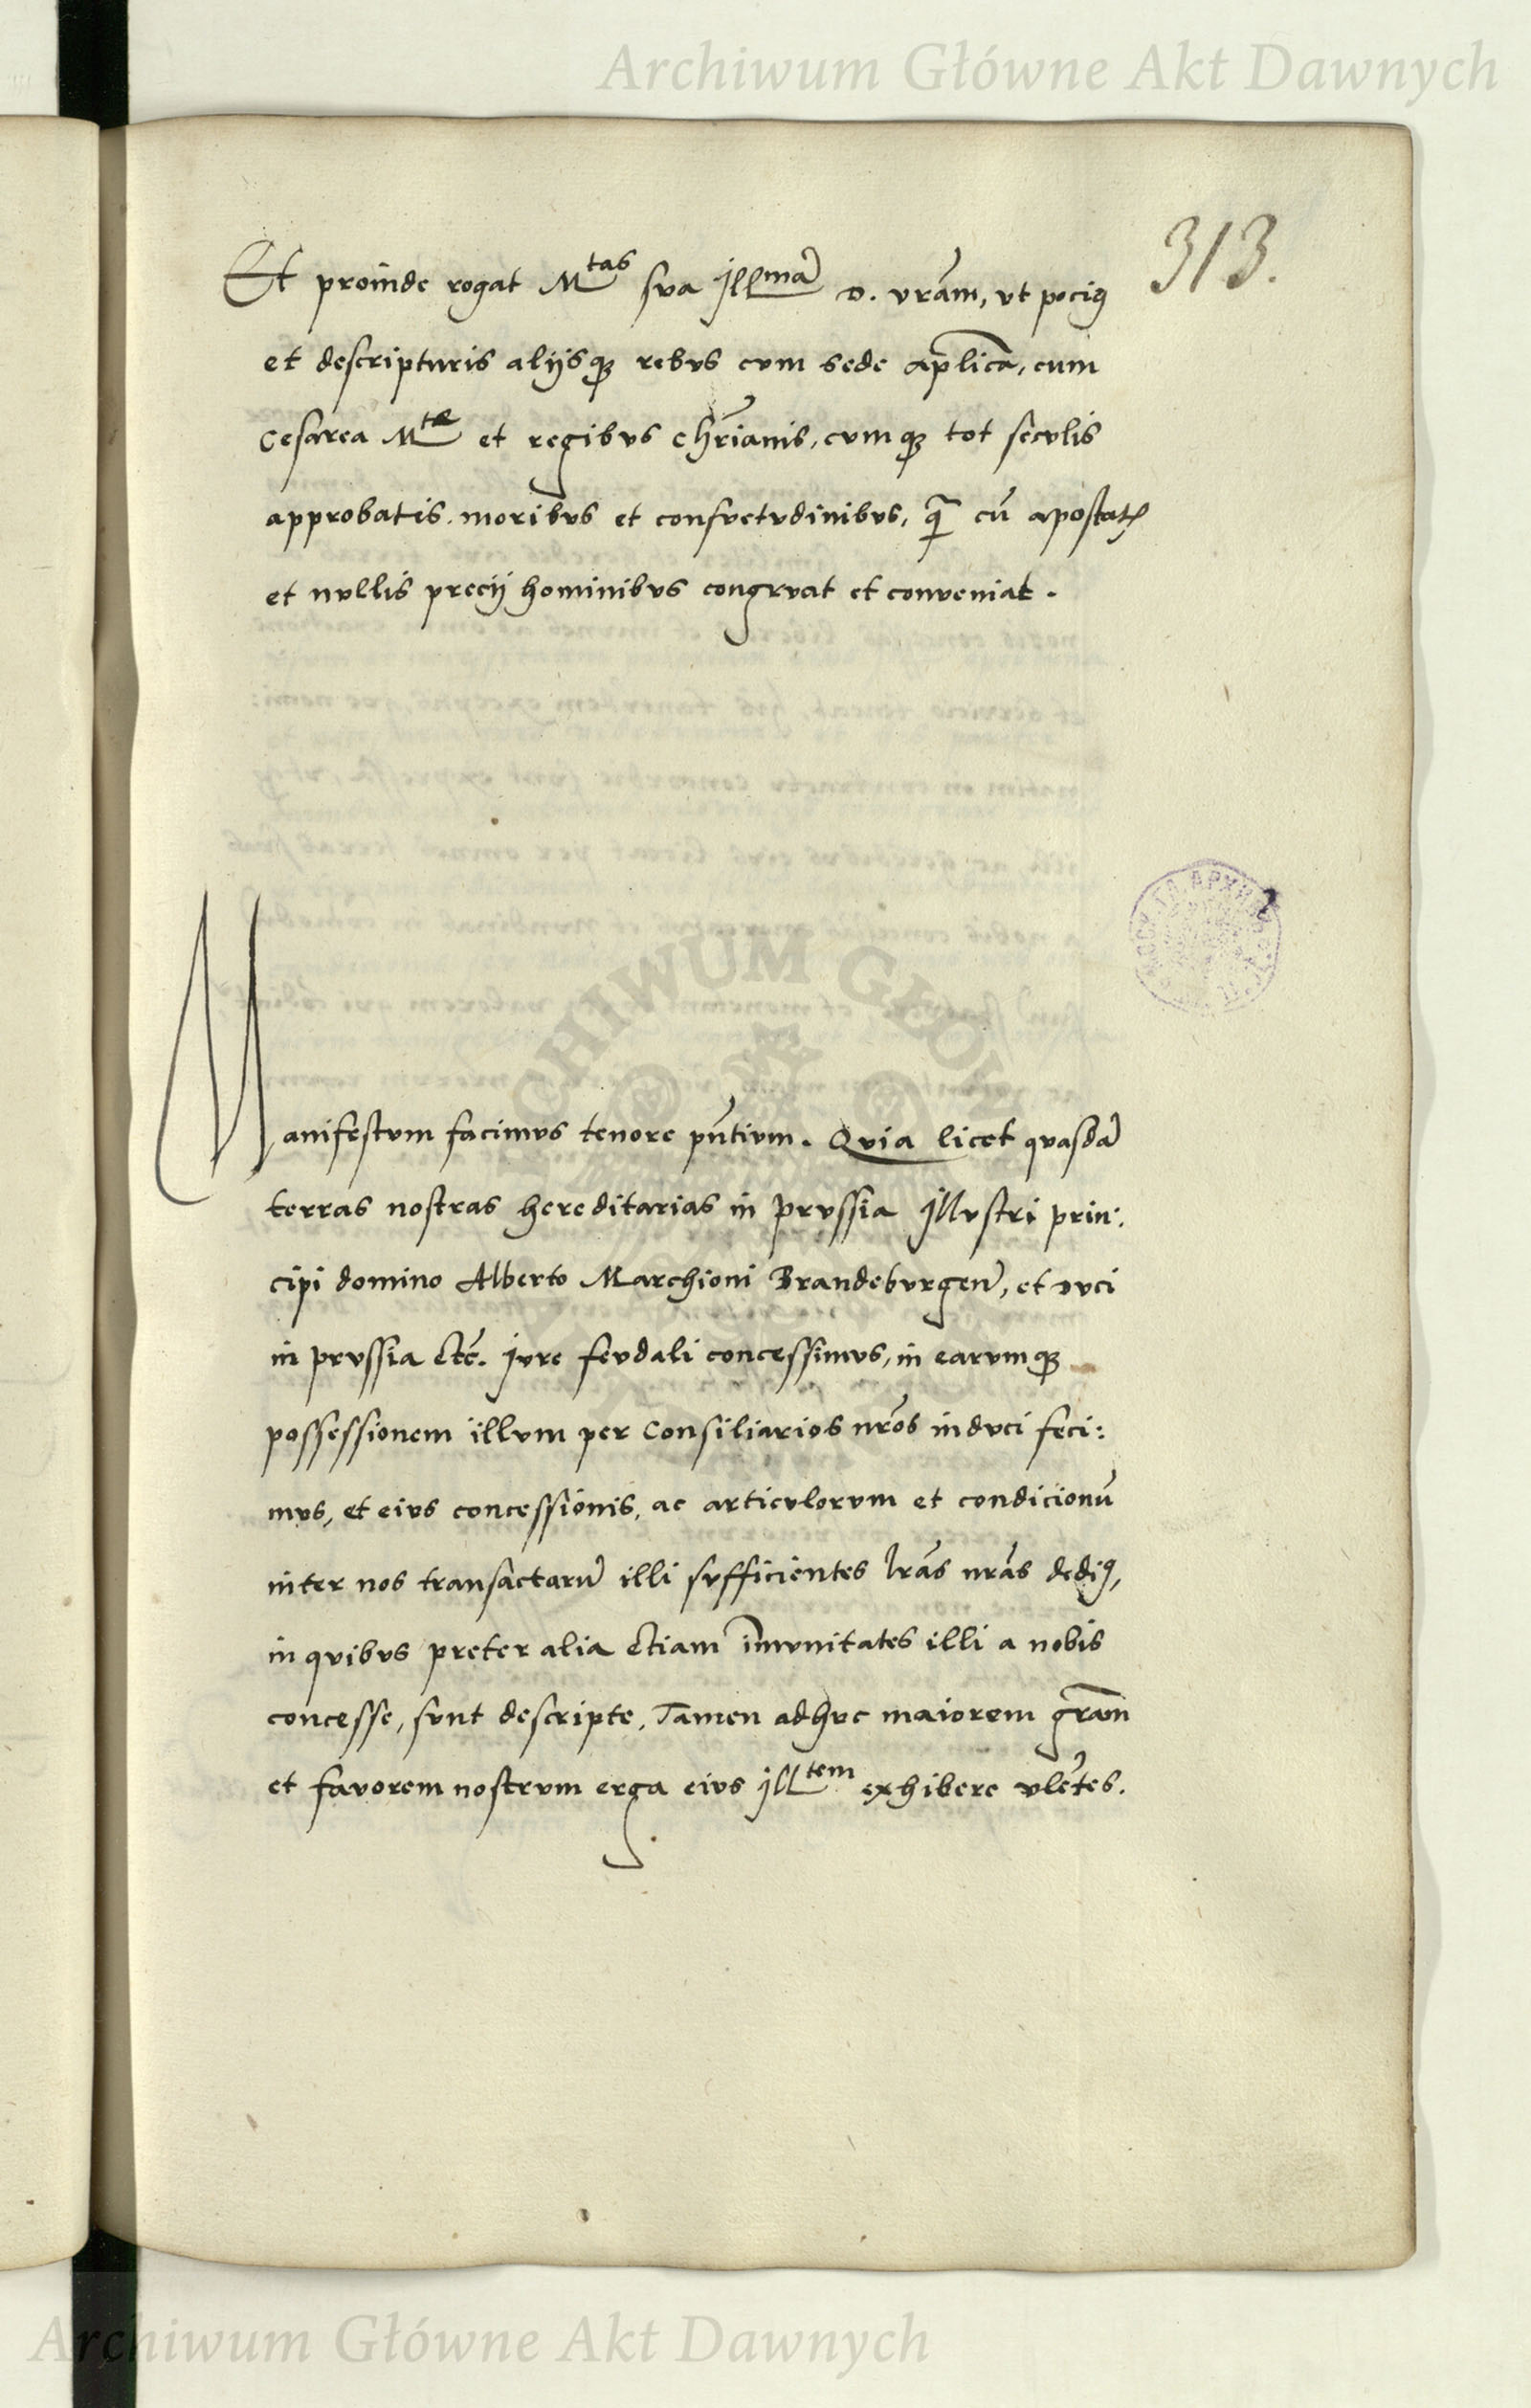 Archiwum Główne Akt Dawnych
313.
Et proinde rogat M^tas sua Jll^mā D. vrām, vt pociꝰ
et descripturis alijsqꝫ rebus cum sede aplica̅, cum
Cesarea M^te et regibus chrianis̅, cumqꝫ tot seculis
approbatis moribus et consuetudinibus, q̄ cū apostatꝭ
et nullis precij hominibus congruat et conueniat.
Manifestum facimus tenore pn̄tium. Quia licet quasdā
terras nostras hereditarias in prussia Jllustri prin:
cipi domino Alberto Marchioni Brandeburgen̄, et duci
in prussia etc̄. Jure feudali concessimus, in earumqꝫ
possessionem illum per Consiliarios nrōs induci feci:
mus, et eius concessionis, ac articulorum et condicionū
inter nos transactarū illi sufficientes lrās nrās dediꝰ,
in quibus preter alia etiam im̄unitates illi a nobis
concesse, sunt descripte, Tamen adhuc maiorem gra̅m
et fauorem nostrum erga eius Jll^tem exhibere vlēntes.
ARCHIWUM GŁÓW
Archiwum Główne Akt Dawnych